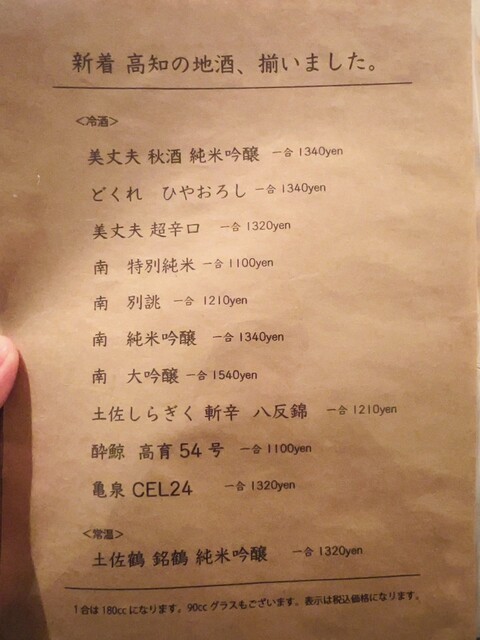 新着 高知の地酒、揃いました。
＜冷酒＞
美丈夫 秋酒 純米吟醸 一合 1340yen
どくれ ひやおろし 一合 1340yen
美丈夫 超辛口 一合 1320yen
南 特別純米 一合 1100yen
南 別誂 一合 1210yen
南 純米吟醸 一合 1340yen
南 大吟醸 一合 1540yen
土佐しらぎく 斬辛 八反錦 一合 1210yen
酔鯨 高育 54 号 一合 1100yen
亀泉 CEL24 一合 1320yen
＜常温＞
土佐鶴 銘鶴 純米吟醸 一合 1320yen
1合は180ccになります。90ccグラスもございます。表示は税込価格になります。